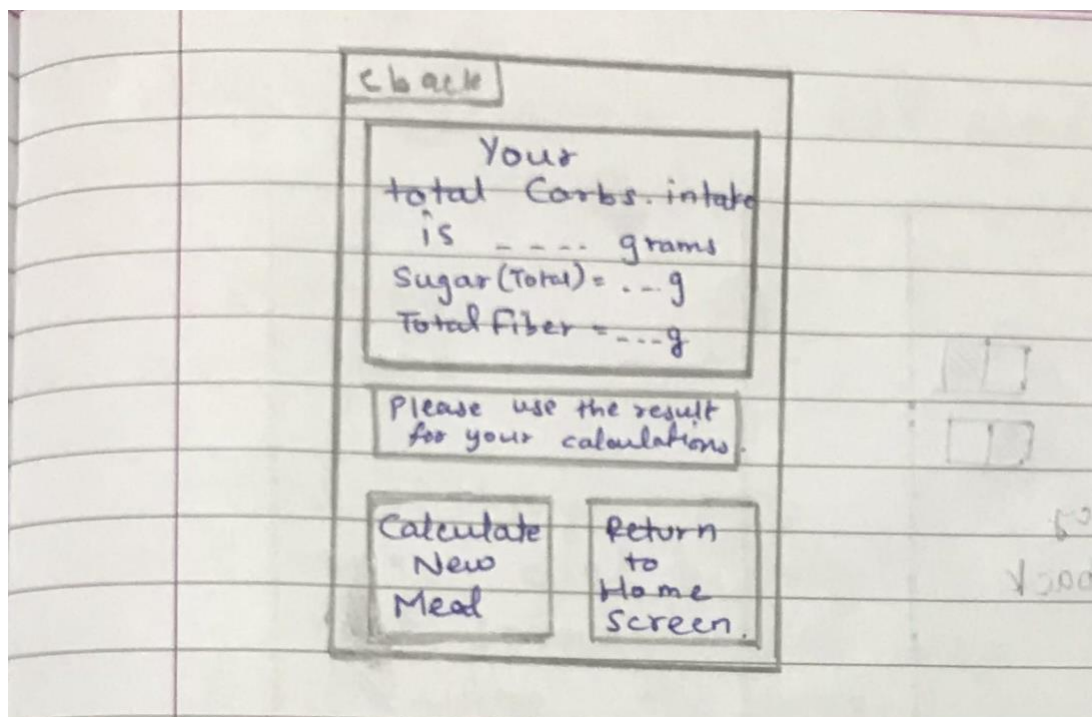 <back
Your
total Carbs. intake
is ---- grams
Sugar (Total) = ---g
Total Fiber = ----g
Please use the result
for your calculations.
Calculate
New
Meal
Return
to
Home
Screen.